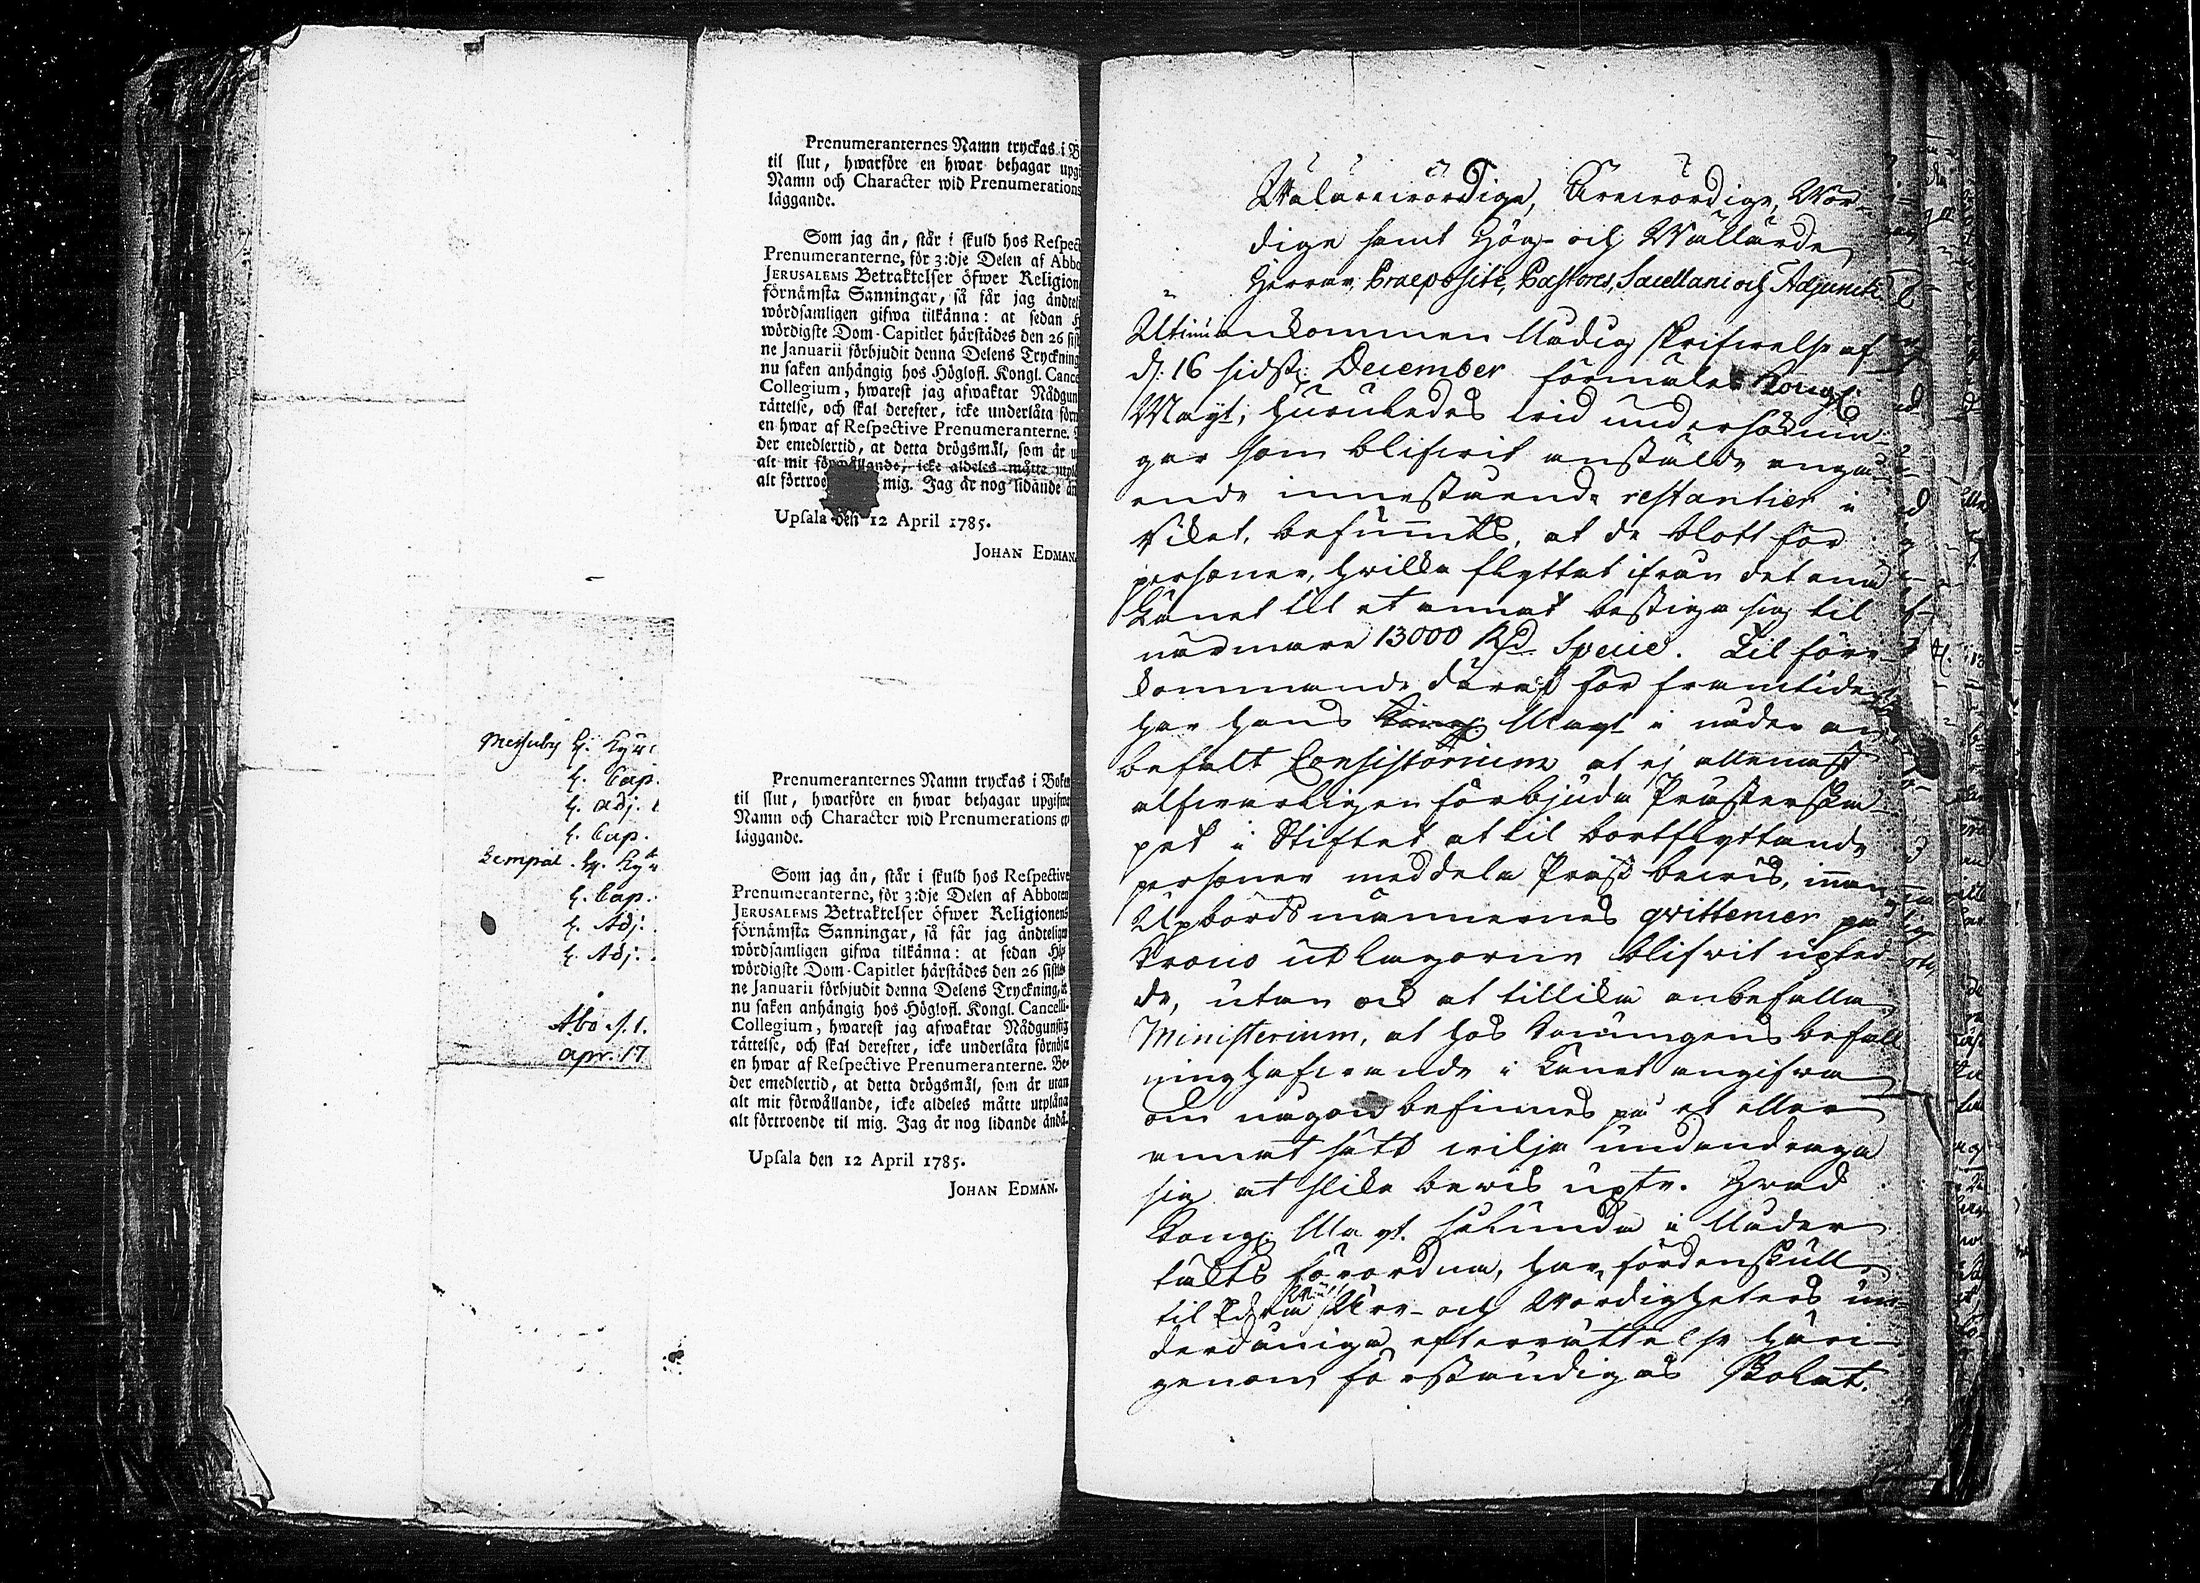 Prenumeranternes Namn tryckas i B
til slut, hwarföre en hwar behagar upgi
Namn och Character wid Prenumerations
läggande.
Som jag än, står i skuld hos Respect
Prenumeranterne, för 3:dje Delen af Abbo
JERUSALEMS Betraktelser öfwer Religion
förnämsta Sanningar, så får jag ändtel
wördsamligen gifwa tilkänna: at sedan H
wördigste Dom-Capitlet härstädes den 26 sist
ne Januarii förbjudit denna Delens Tryckning
nu saken anhängig hos Höglofl. Kongl. Cance
Collegium, hwarest jag afwaktar Nådgun
rättelse, och skal derefter, icke underlåta förn
en hwar af Respective Prenumeranterne.
der emedlertid, at detta drögsmål, som är u
alt mit förwållande, icke aldeles måtte utpl
alt förtroe mig. Jag är nog lidande än
Upsala den 12 April 1785.
JOHAN EDMAN
Messuby H. Ky
H. Cap.
H. adj.
H. Cap.
Lempäl. H. Ky
H. Cap.
H. Adj.
H. Adj.
Åbo d. 1.
apr. 17
Prenumeranternes Namn tryckas i Boken
til slut, hwarföre en hwar behagar upgifwa
Namn och Character wid Prenumerations ep
läggande.
Som jag än, står i skuld hos Respective
Prenumeranterne, för 3:dje Delen af Abboten
JERUSALEMS Betraktelser öfwer Religionens
förnämsta Sanningar, så får jag ändteligen
wördsamligen gifwa tilkänna: at sedan Hög
wördigste Dom-Capitlet härstädes den 26 sistle
ne Januarii förbjudit denna Delens Tryckning, är
nu saken anhängig hos Höglofl. Kongl. Cancelli-
Collegium, hwarest jag afwaktar Nådgunstig
rättelse, och skal derefter, icke underlåta förnöja
en hwar af Respective Prenumeranterne. Be-
der emedlertid, at detta drögsmål, som är utan
alt mit förwållande, icke aldeles måtte utplåna
alt förtroende til mig. Jag är nog lidande ändå.
Upsala den 12 April 1785.
JOHAN EDMAN.
Wälärewördige, Ärewördige, Wör-
dige samt Hög- och Wällärde
Herrar, Praepositi, Pastores, Sacellani och Adjuncti
Uti ankommen Nådig skrifwelse af
d. 16 sidstl. December förmäler Kongl.
Mayt, huruledes wid undersöknin-
gar som blifwit anstälde angå-
ende innestående restantier i
Riket, befunnits, at de blott för
personer, hwilka flyttat ifrån det ena
Länet til et annat bestiga sig til
närmare 13000 Rd Specie. Til före-
kommande däraf för framtiden
har hans Kongl. Mayt i nåder an-
befalt Consistorium at ej allenast
alfwarligen förbjuda Prästerska-
pet i Stiftet at til bortflyttande
personer meddela Präst bewis, innan
Upbördsmännernes qvittencer på
Krono utlagorne blifwit upted-
de, utan ock at tillika anbefalla
Ministerium, at hos Konungens befall-
ningshafwande i Länet angifwa
om någon befinnes på et eller
annat sätt wilja undandraga
sig at slika bewis upte. Hwad
Kongl. Mayt. sålunda i Nåder
täckts förordna, har fördenskull
til Edra Äre- och Wördigheters un-
derdåniga efterrättelse häri-
genom förständigas skolat.